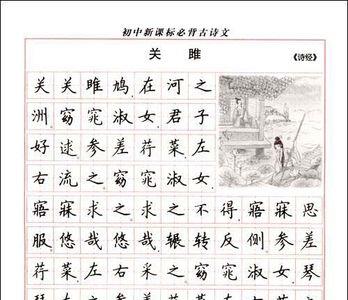 初中新课标必背古诗文
关雎
《诗经》
关关雎鸠,在河之
洲。窈窕淑女,君子
好逑。参差荇菜,左
右流之。窈窕淑女,
寤寐求之。求之不得,寤寐思
服。悠哉悠哉,辗转反侧。参差
荇菜,左右采之。窈窕淑女,琴